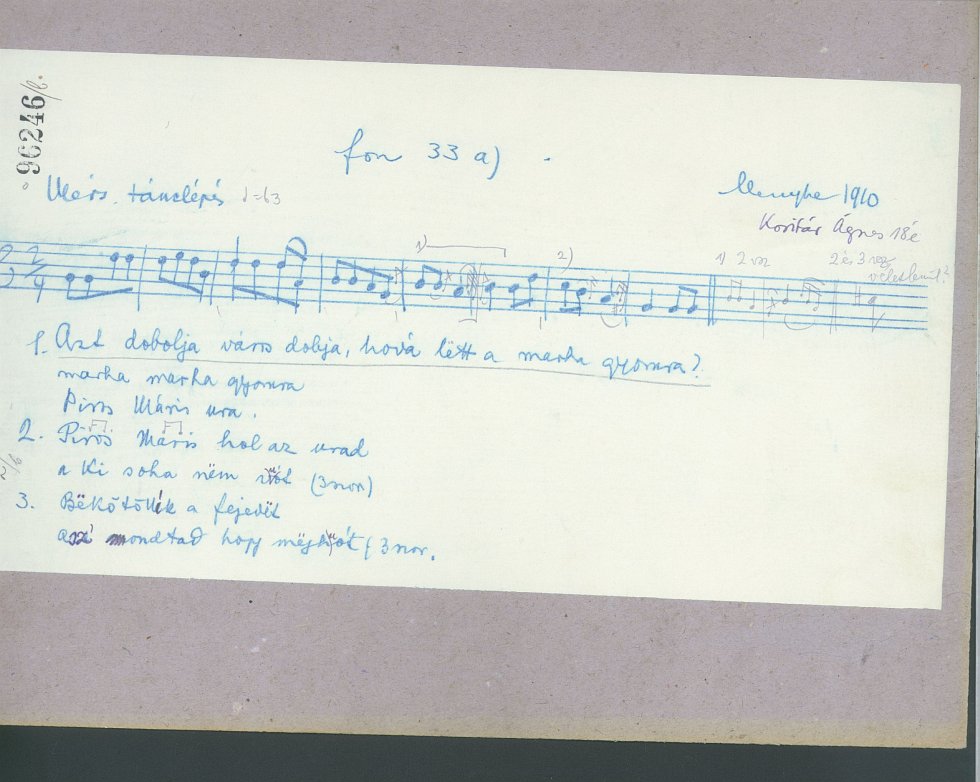 96246/b.
fon 33 a)
Mérs. tánclépés ♩=63
Menyhe 1910
Kosztár Ágnes 18 é
1)
2)
1) 2 vsz
2 és 3 vsz
véletlen!?
2/4
1. Azt dobolja város dobja, hová lëtt a marha gyomra?
marha marha gyomra
Piros Máris ura.
2. Piros Máris hol az urad
a Ki soha nëm
3. Bëkötötték a fejedët
mondtad hogy (3 sor.